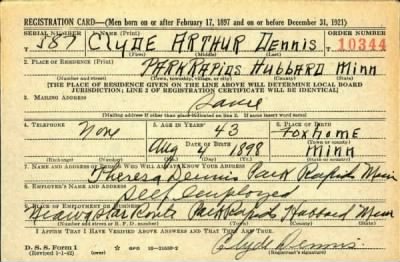 REGISTRATION CARD—(Men born on or after February 17, 1897 and on or before December 31, 1921)
SERIAL NUMBER 1. NAME (Print) ORDER NUMBER
587 CLYDE ARTHUR Dennis 10344
(First) (Middle) (Last)
2. PLACE OF RESIDENCE (Print)
PARK RAPIDS HubbARD Minn
(Number and street) (Town, township, village, or city) (County) (State)
[THE PLACE OF RESIDENCE GIVEN ON THE LINE ABOVE WILL DETERMINE LOCAL BOARD
JURISDICTION; LINE 2 OF REGISTRATION CERTIFICATE WILL BE IDENTICAL]
3. MAILING ADDRESS
Same
[Mailing address if other than place indicated on line 2. If same insert word same]
4. TELEPHONE 5. AGE IN YEARS 6. PLACE OF BIRTH
None 43 Foxhome
DATE OF BIRTH (Town or county)
Aug 4 1898 Minn
(Exchange) (Number) (Mo.) (Day) (Yr.) (State or country)
7. NAME AND ADDRESS OF PERSON WHO WILL ALWAYS KNOW YOUR ADDRESS
Theresa Dennis Park Rapids Minn
8. EMPLOYER'S NAME AND ADDRESS
Self Employed
9. PLACE OF EMPLOYMENT OR BUSINESS
Star Route Park Rapids Hubbard Minn
(Number and street or R. F. D. number) (Town) (County) (State)
I AFFIRM THAT I HAVE VERIFIED ABOVE ANSWERS AND THAT THEY ARE TRUE.
D. S. S. Form 1
(Revised 1-1-42) (over) GPO 16—21630-2 Clyde Dennis